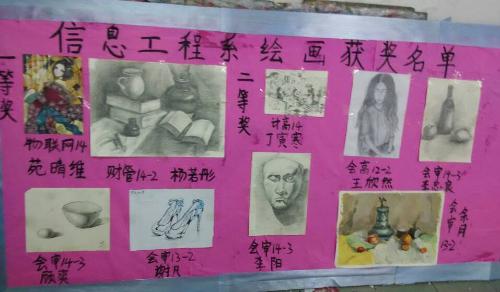 信息工程系绘画获奖名单
一等奖
物联网14
苑晴维
财管14-2 杨若彤
会审14-3
颜奕
会审13-2
谢凡
二等奖
计高14
丁寅寒
会审14-3
李阳
会高12-2
王欣然
会审14-3
会审
13-2